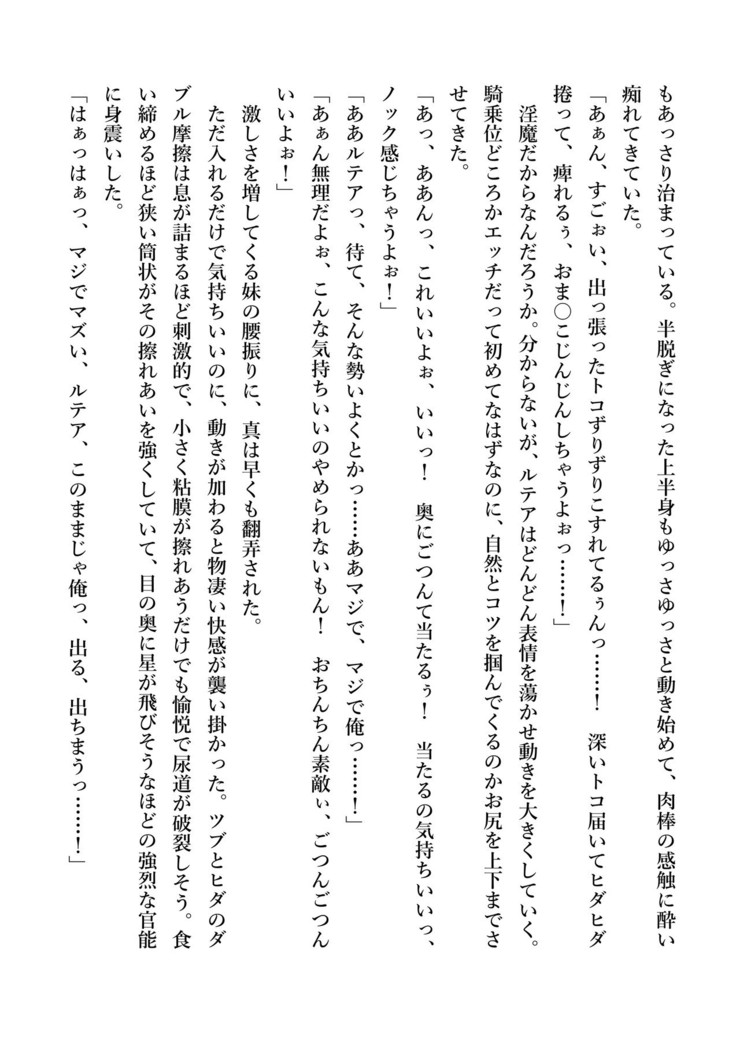 もあっさり治まっている。半脱ぎになった上半身もゆっさゆっさと動き始めて、肉棒の感触に酔い
痴れてきていた。
「あぁん、すごぉい、出っ張ったトコずりずりこすれてるぅんっ………！　深いトコ届いてヒダヒダ
捲って、痺れるぅ、おま〇こじんじんしちゃうよぉっ………！」
　淫魔だからなんだろうか。分からないが、ルテアはどんどん表情を蕩かせ動きを大きくしていく。
騎乗位どころかエッチだって初めてなはずなのに、自然とコツを掴んでくるのかお尻を上下までさ
せてきた。
「あっ、ああんっ、これいいよぉ、いいっ！　奥にごつんて当たるぅ！　当たるの気持ちいいっ、
ノック感じちゃうよぉ！」
「ああルテアっ、待て、そんな勢いよくとかっ……ああマジで、マジで俺っ………！」
「あぁん無理だよぉ、こんな気持ちいいのやめられないもん！　おちんちん素敵ぃ、ごつんごつん
いいよぉ！」
　激しさを増してくる妹の腰振りに、真は早くも翻弄された。
　ただ入れるだけで気持ちいいのに、動きが加わると物凄い快感が襲い掛かった。ツブとヒダのダ
ブル摩擦は息が詰まるほど刺激的で、小さく粘膜が擦れあうだけでも愉悦で尿道が破裂しそう。食
い締めるほど狭い筒状がその擦れあいを強くしていて、目の奥に星が飛びそうなほどの強烈な官能
に身震いした。
「はぁっはぁっ、マジでマズい、ルテア、このままじゃ俺っ、出る、出ちまうっ………！」